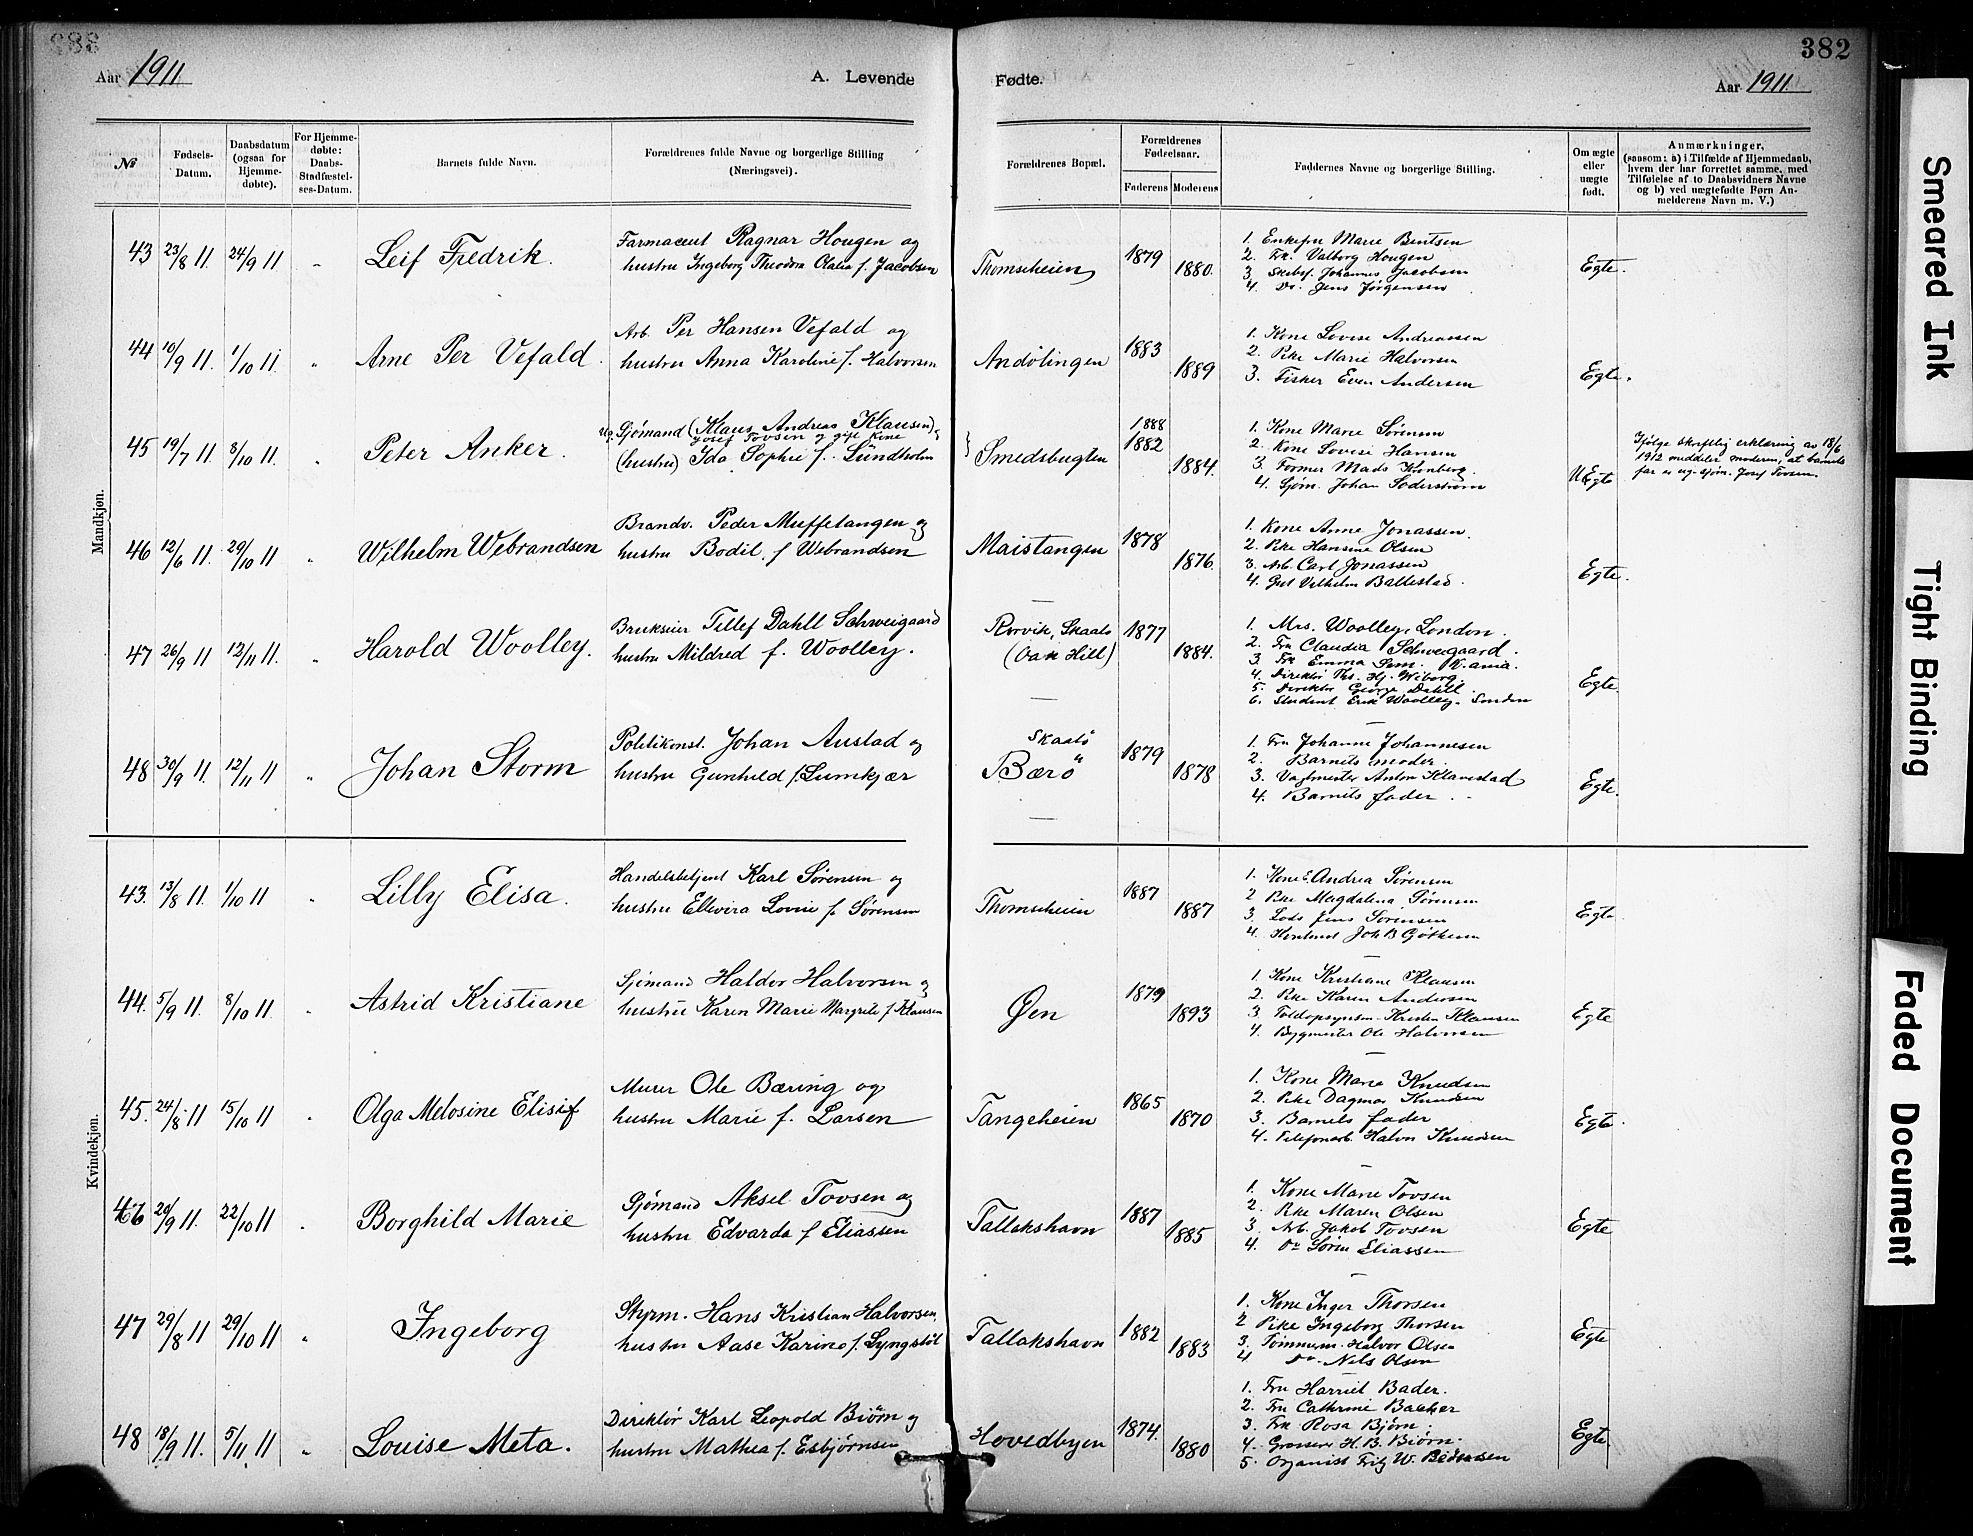 382
Aar 1911
A. Levende
Fødte.
Aar 1911
No
Fødsels-
Datum.
Daabsdatum
(ogsaa for
Hjemme-
døbte).
For Hjemme-
døbte:
Daabs-
Stadfæstel-
ses-Datum.
Barnets fulde Navn.
Forældrenes fulde Navne og borgerlige Stilling
(Næringsvei).
Forældrenes Bopæl.
Forældrenes
Fødselsaar.
Faderens
Moderens
Faddernes Navne og borgerlige Stilling.
Om ægte
eller
uægte
født.
Anmærkninger,
(saasom: a) i Tilfælde af Hjemmedaab,
hvem der har forrettet samme, med
Tilføielse af to Daabsvidners Navne
og b) ved uægtefødte Børn An-
melderens Navn m. V.)
Mandkjøn.
43 23/8 11. 24/9 11 Leif Fredrik.
Farmaceut Ragnar Hougen og
hustru Ingeborg Theodora Olalia f. Jacobsen
Thomsheien 1879 1880.
1. Enkefru Marie Bentsen
2. Frk. Valborg Hougen
3. Skibsf. Johannes Jacobsen
4. Do. Jens Jørgensen
Egte.
44 10/9 11. 1/10 11. Arne Per Vefald.
Arb. Per Hansen Vefald og
hustru Anna Karoline f. Halvorsen
Andølingen 1883 1889
1. Kone Lovise Andreassen
2. Pike Marie Halvorsen
3. Fisker Even Andersen
Egte.
45 19/7 11. 8/10 11. Peter Anker.
Ug. Sjømand (Klaus Andreas Klausen) og
Josef Tovsen og gift Kone
(hustru) Ida Sophie f. Lundholm
Smedsbugten 1888 1882 1884.
1. Kone Marie Sørensen
2. Kone Lovise Hansen
3. Former Mads Kronberg.
4. Sjøm. Johan Soderstrøm
UEgte
Ifølge skriftlig erklæring av 18/6
1912 meddeler moderen, at barnets
far er ug. sjøm. Josef Tovsen.
46 12/6 11. 29/10 11. Wilhelm Webrandsen
Brandv. Peder Muffetangen og
hustru Bodil f. Webrandsen
Maistangen 1878 1876.
1. Kone Anne Jonassen.
2. Pike Hansine Olsen
3. Arb. Carl Jonassen
4. Gut Vilhelm Ballestad.
Egte.
47 26/9 11 12/11 11. Harold Woolley.
Brukseier Tellef Dahll Schweigaard
hustru Mildred f. Woolley.
Rørvik, Skaatø
(Oak Hill)
1877 1884.
1. Mrs. Woolley, London.
2. Fru Claudia Schweigaard.
3. Frk Emma Sem. K.ania.
4. Direktør Ths. Hj. Wiborg.
5. Direktør George Dahll
6. Student Erik Woolley. London
Egte
48 30/9 11. 12/11 11 Johan Storm
Politikonst. Johan Austad og
hustru Gunhild f. Lumkjær
Skaatø
Bærø 1879 1878
1. Fru Johanne Johannesen
2. Barnets moder.
3. Vagtmester Anton Klavestad
4. Barnets fader.
Egte.
Kvindekjøn.
43. 13/8 11. 1/10 11 Lilly Elisa.
Handelsbetjent Karl Sørensen og
hustru Ellevira Lovise f. Sørensen
Thomsheien 1887 1887
1. Kone E. Andrea Sørensen
2 Pike Magdalena Sørensen
3. Lods Jens Sørensen
4. Joh B
Egte
44. 5/9 11. 8/10 11. Astrid Kristiane
Sjømand Haldor Halvorsen og
hustru Karen Marie Margrete f Klausen
Øen 1879 1893
1. Kone Kristiane Klausen
2. Pike Karen Andersen
3 Toldopsynsm. Kristen Klausen
4. Bygmester Ole Halvorsen
Egte
45. 24/8 11 15/10 11 Olga Melosine Elisif
Murer Ole Bæring og
hustru Marie f. Larsen
Tangeheien 1865 1870
1. Kone Marie Knudsen
2. Pike Dagmar Knudsen
3. Barnets fader
4. Telefonarb. Halvor Knudsen
Egte.
46 20/9 11. 22/10 11 Borghild Marie
Sjømand Aksel Tovsen og
hustru Edvarda f Eliassen
Tallakshavn 1887 1885
1. Kone Marie Tovsen
2. Pike Maren Olsen
3. Arb. Jakob Tovsen
4. Do Søren Eliassen
Egte
47 29/8 11 29/10 11 Ingeborg
Styrm. Hans Kristian Halvorsen,
hustru Aase Karine f. Lyngstøl
Tallakshavn 1882 1883
1. Kone Inger Thorsen
2 Pike Ingeborg Thorsen
3. Tømmerm. Halvor Olsen
4 Do. Nils Olsen
Egte
48 18/9 11. 5/11 11 Louise Meta.
Direktør Karl Leopold Biørn og
hustru Mathea f. Esbjørnsen
Hovedbyen 1874. 1880
1. Fru Harriet Bader.
2. Fru Cathrine Backer
3. Frk Rosa Bjørn.
4. Grosserer H. B. Biørn.
5. Organist Fritz W.
Egte
Smeared Ink
Tight Binding
Faded Document